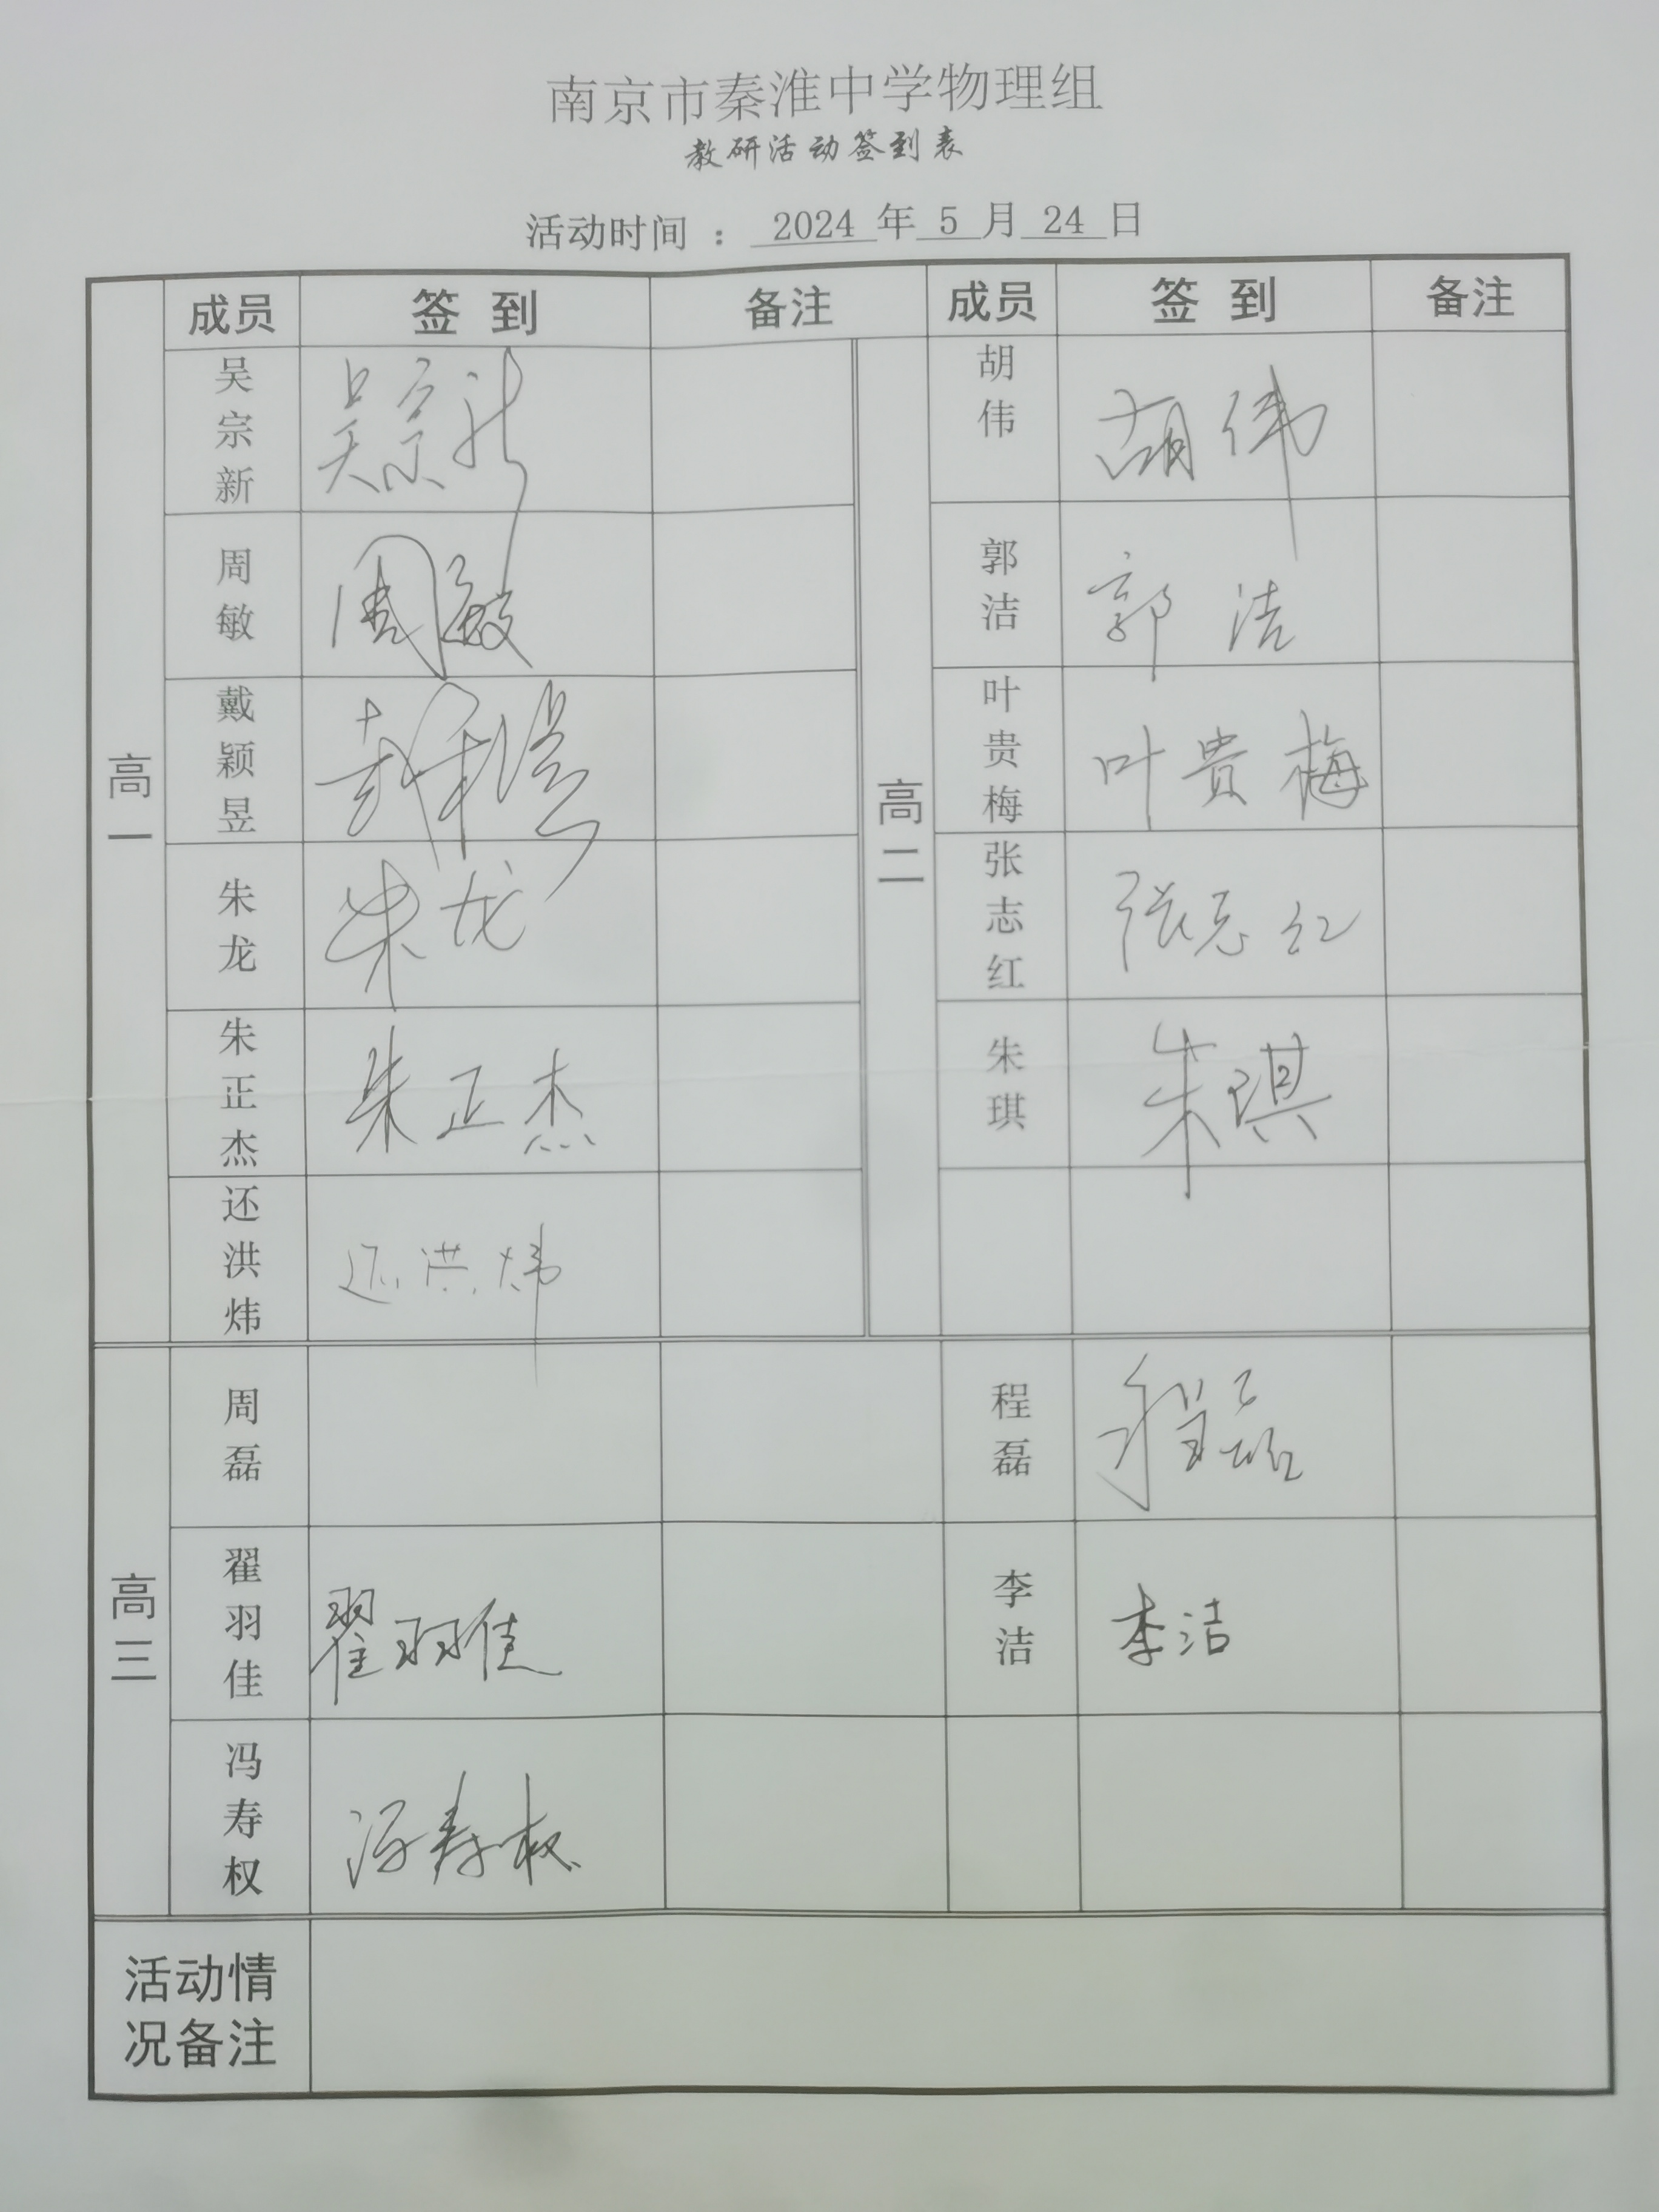 南京市秦淮中学物理组
教研活动签到表
活动时间 ： 2024 年 5 月 24 日
成员 签 到 备注 成员 签 到 备注
高一
吴宗新 吴宗新
周敏 周敏
戴颖昱 戴颖昱
朱龙 朱龙
朱正杰 朱正杰
还洪炜 还洪炜
高二
胡伟 胡伟
郭洁 郭洁
叶贵梅 叶貴梅
张志红 张志红
朱琪 朱琪
高三
周磊
程磊 程磊
翟羽佳 翟羽佳
李洁 李洁
冯寿权 冯寿权
活动情
况备注